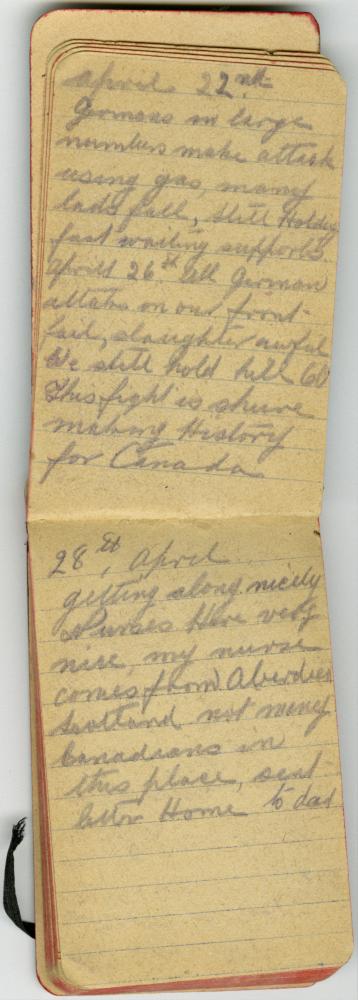 April 22nd
Germans in large
numbers make attack
using gas, many
lads fall, still Holding
fast waiting supports.
April 26st all German
attaks on our front
fail, slaughter awful
We still hold hill 60
This fight is shure
making History
for Canada
28st, April
getting along nicely
Nurses Here very
nice, my nurse
comes from Aberdeen
Scotland not many
Canadians in
this place, sent
letter Home to dad